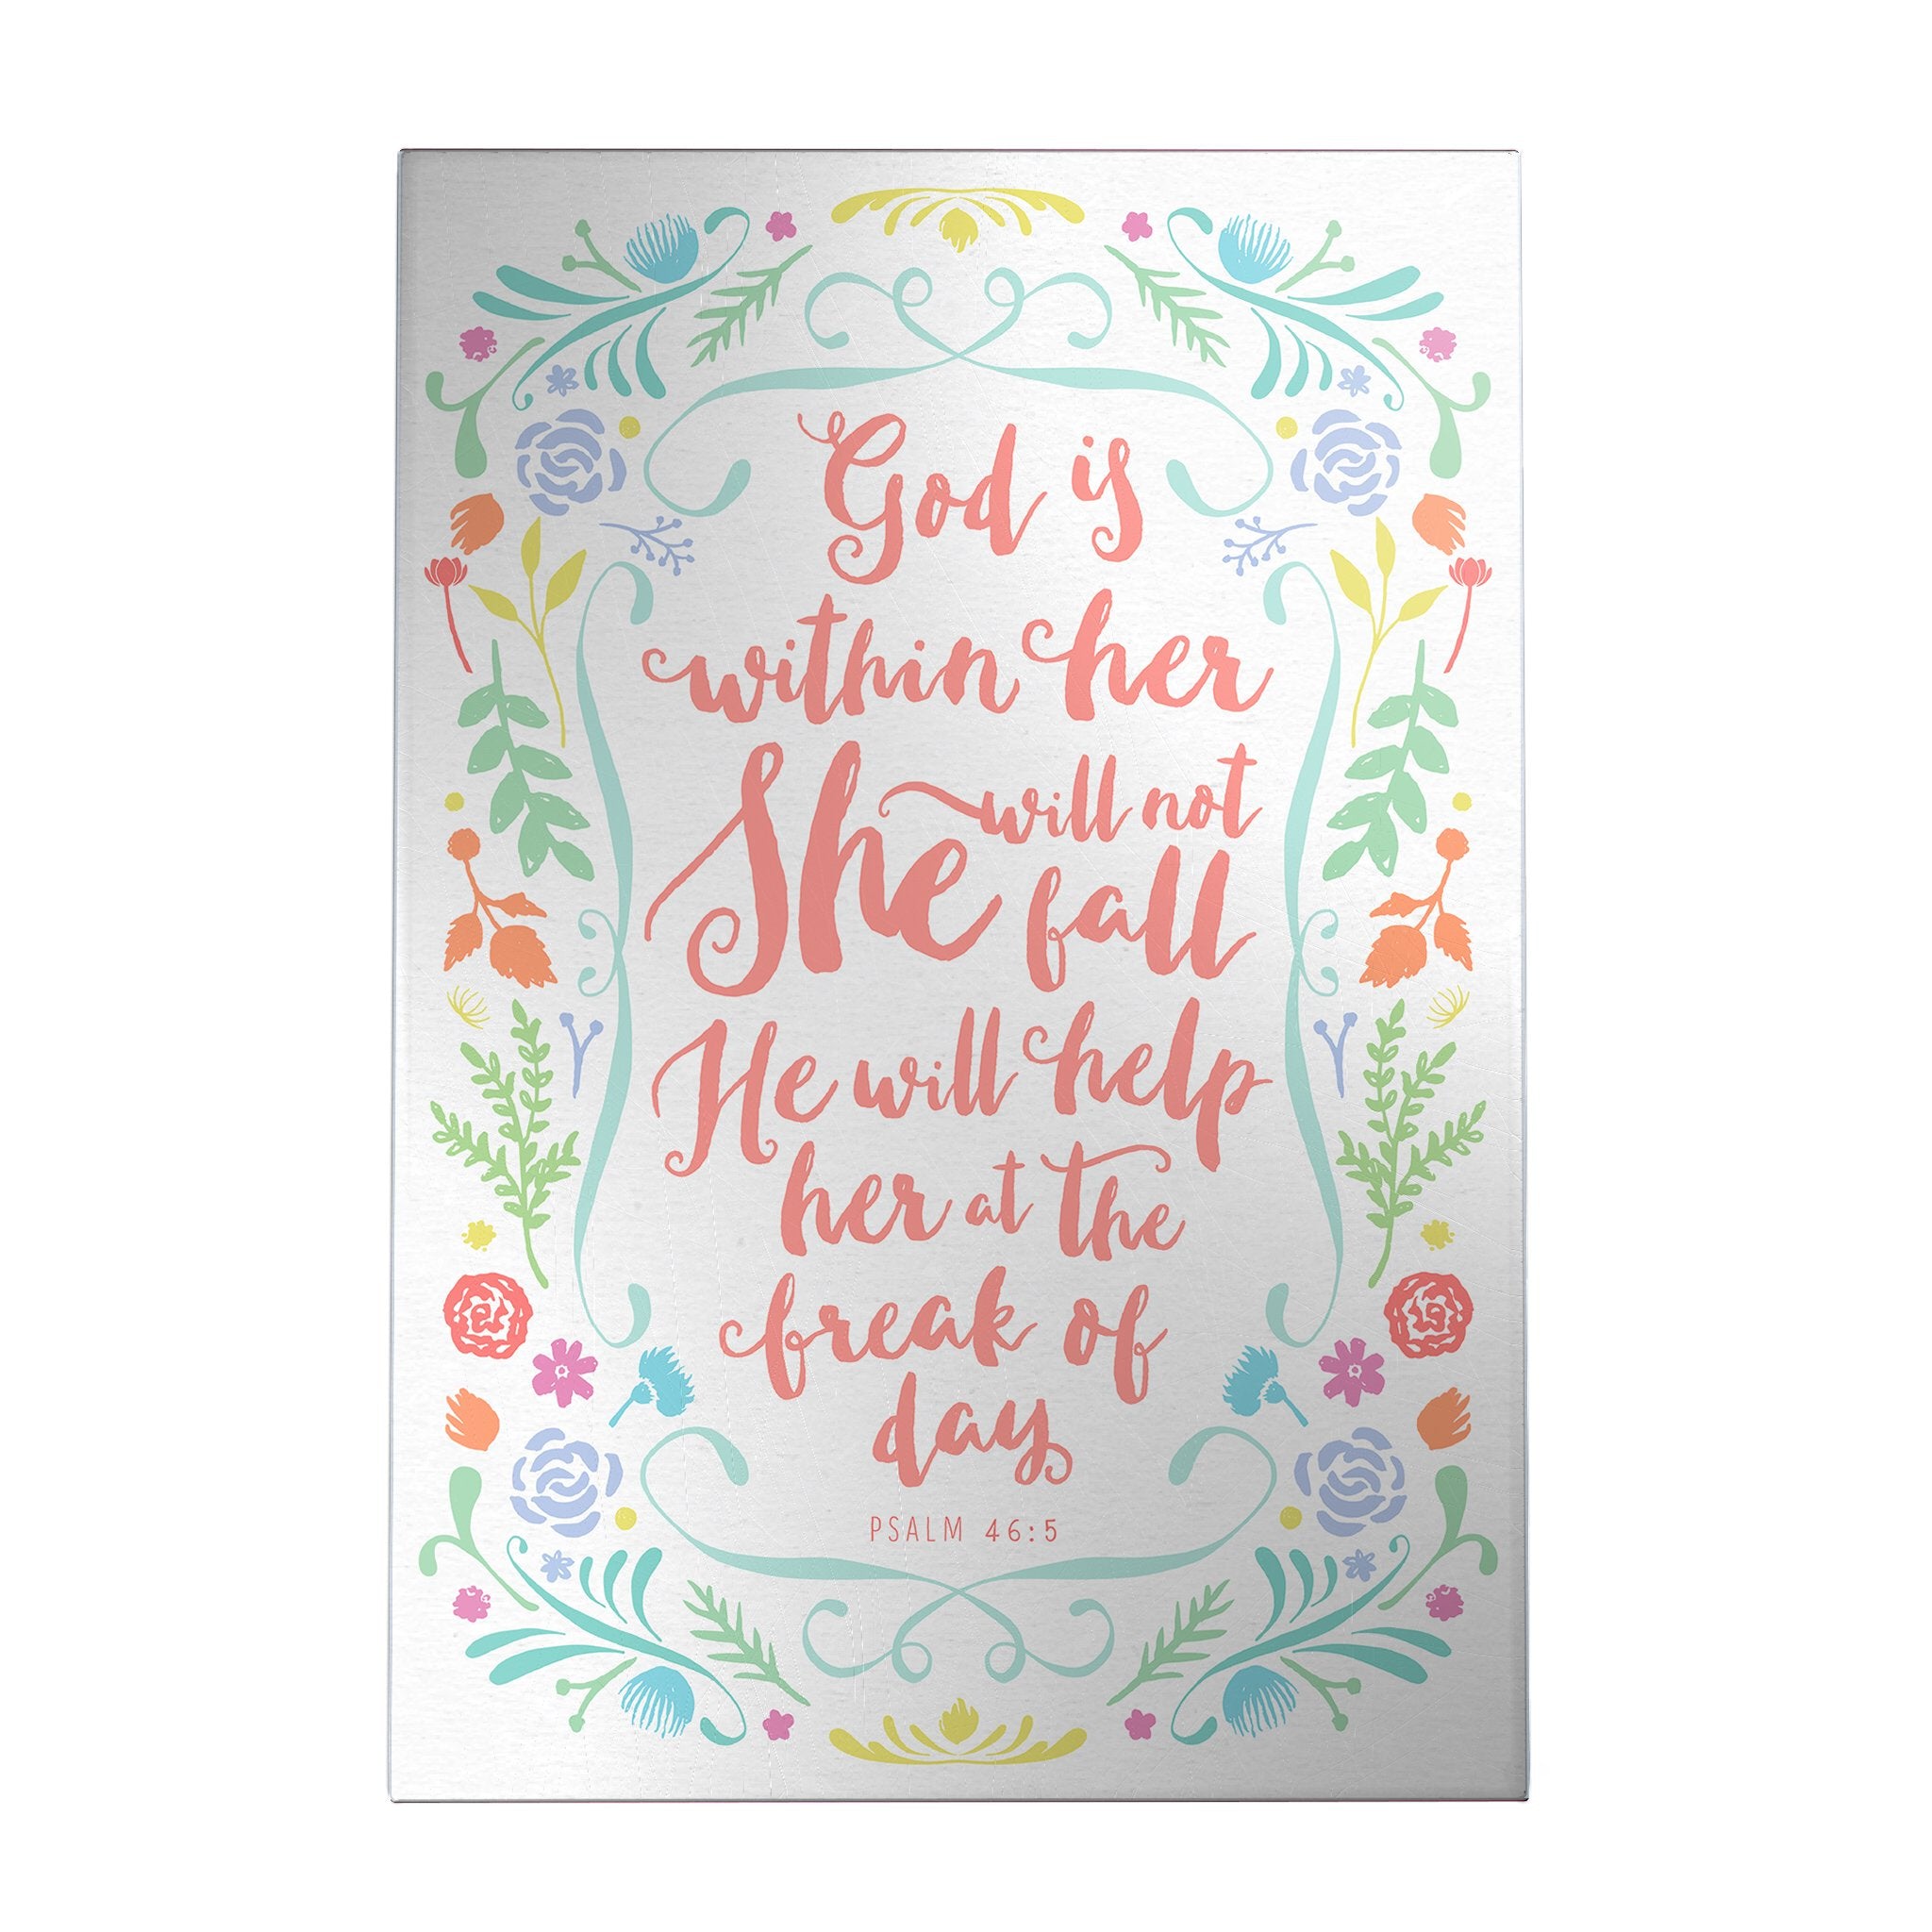 God is
within her
She will not
fall
He will help
her at the
break of
day
PSALM 46:5